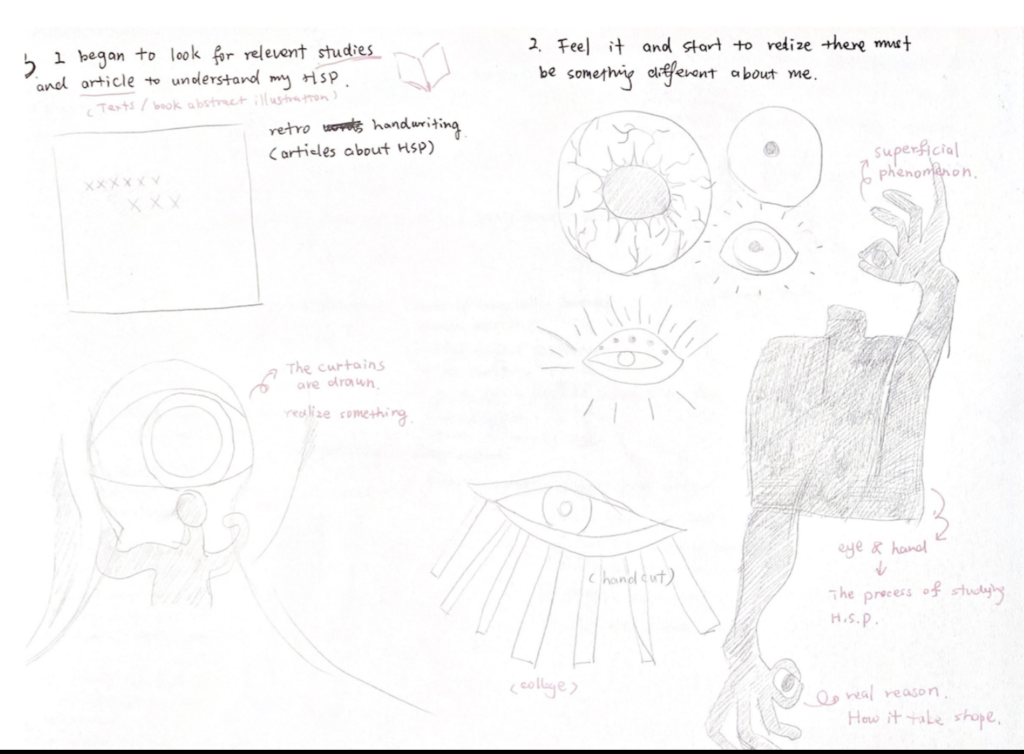 3 I began to look for relevent studies
and article to understand my HSP.
(Texts / book abstract illustration)
retro words handwriting
(articles about HSP)
xxxxxx
xxx
The curtains
are drawn.
realize something.
2. Feel it and start to redize there must
be something different about me.
superficial
phenomenon.
(handcut)
(collage)
eye & hand
↓
The process of studying
H.S.P.
real reason.
How it take shape.